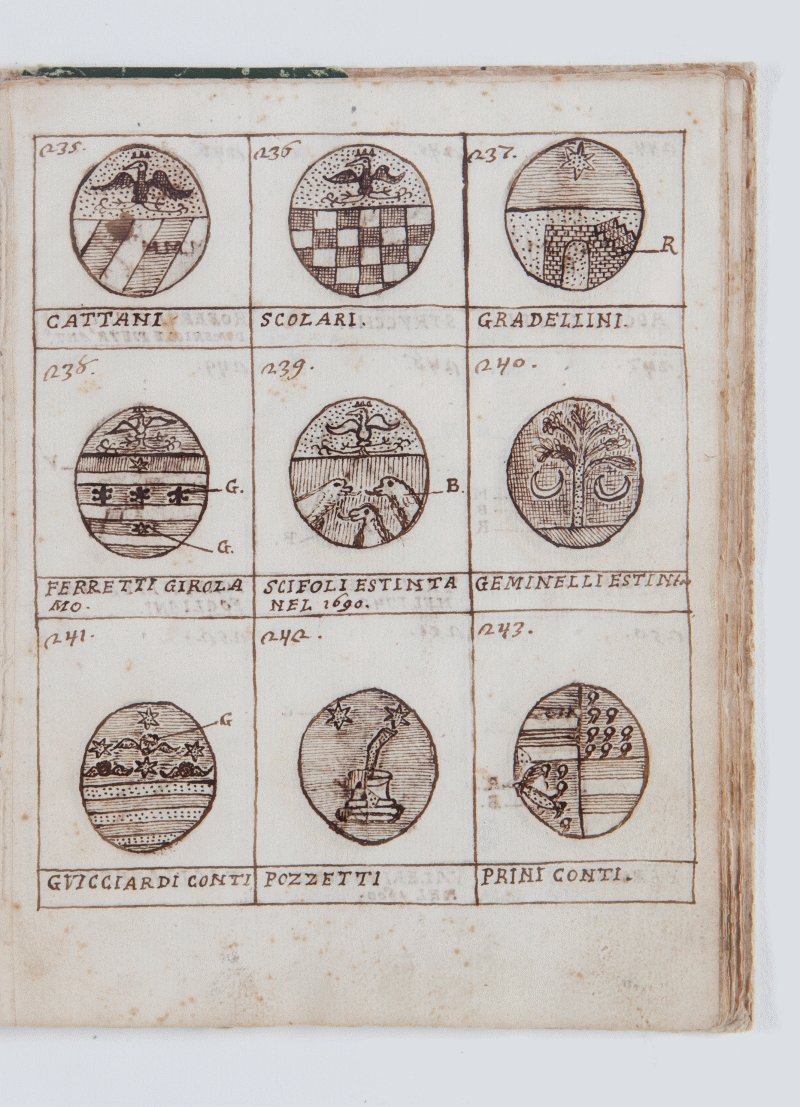 235.
236
237.
R
CATTANI
SCOLARI.
GRADELLINI.
238.
239.
240.
G.
G.
B.
FERRETTI GIROLA
MO.
SCIFOLI ESTINTA
NEL 1690.
GEMINELLI ESTINTA
241.
242.
243.
G
GVICCIARDI CONTI
POZZETTI
PRINI CONTI.